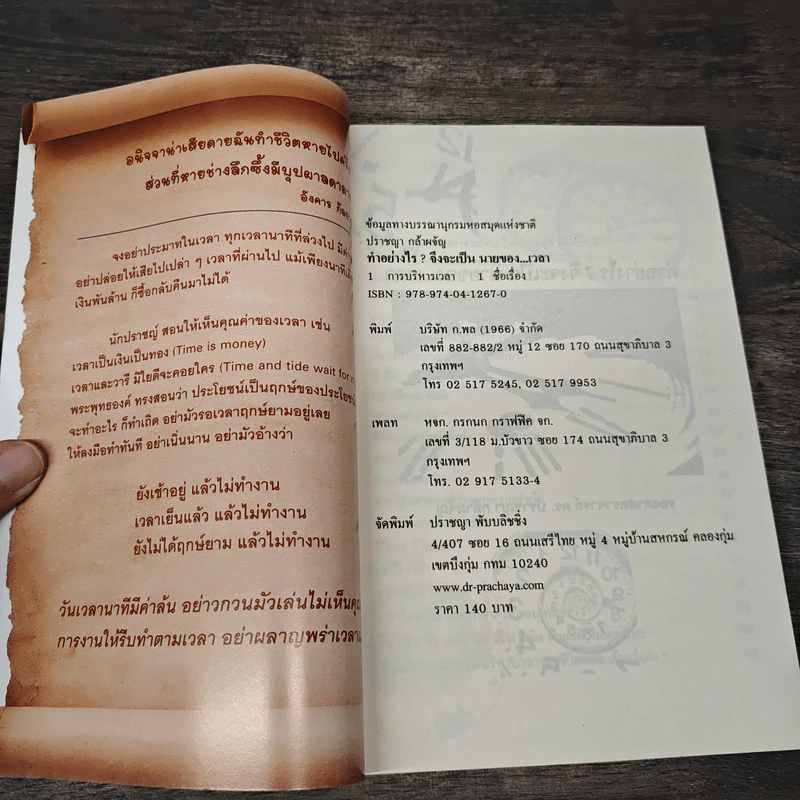 อนิจจาน่าเสียดายฉันทำชีวิตหายไป
ส่วนที่หายช่างลึกซึ้งมีบุปผาลดา
อังคาร
จงอย่าประมาทในเวลา ทุกเวลานาทีที่ล่วงไป มี
อย่าปล่อยให้เสียไปเปล่า ๆ เวลาที่ผ่านไป แม้เพียงนาที
เงินพันล้าน ก็ซื้อกลับคืนมาไม่ได้
นักปราชญ์ สอนให้เห็นคุณค่าของเวลา เช่น
เวลาเป็นเงินเป็นทอง (Time is money)
เวลาและวารี มิใยดีจะคอยใคร (Time and tide wait for
พระพุทธองค์ ทรงสอนว่า ประโยชน์เป็นฤกษ์ของประโยชน์
จะทำอะไร ก็ทำเถิด อย่ามัวรอเวลาฤกษ์ยามอยู่เลย
ให้ลงมือทำทันที อย่าเนิ่นนาน อย่ามัวอ้างว่า
ยังเช้าอยู่ แล้วไม่ทำงาน
เวลาเย็นแล้ว แล้วไม่ทำงาน
ยังไม่ได้ฤกษ์ยาม แล้วไม่ทำงาน
วันเวลานาทีมีค่าล้น อย่าวกวนมัวเล่นไม่เห็น
การงานให้รีบทำตามเวลา อย่าผลาญพร่าเวลา
ข้อมูลทางบรรณานุกรมหอสมุดแห่งชาติ
ปราชญา กล้าผจัญ
ทำอย่างไร ? จึงจะเป็น นายของ...เวลา
1 การบริหารเวลา 1 ชื่อเรื่อง
ISBN : 978-974-04-1267-0
พิมพ์ บริษัท ก.พล (1966) จำกัด
เลขที่ 882-882/2 หมู่ 12 ซอย 170 ถนนสุขาภิบาล 3
กรุงเทพฯ
โทร 02 517 5245, 02 517 9953
เพลท หจก. กรกนก กราฟฟิค จก.
เลขที่ 3/118 ม.บัวขาว ซอย 174 ถนนสุขาภิบาล 3
กรุงเทพฯ
โทร. 02 917 5133-4
จัดพิมพ์ ปราชญา พับบลิชชิ่ง
4/407 ซอย 16 ถนนเสรีไทย หมู่ 4 หมู่บ้านสหกรณ์ คลองกุ่ม
เขตบึงกุ่ม กทม 10240
www.dr-prachaya.com
ราคา 140 บาท